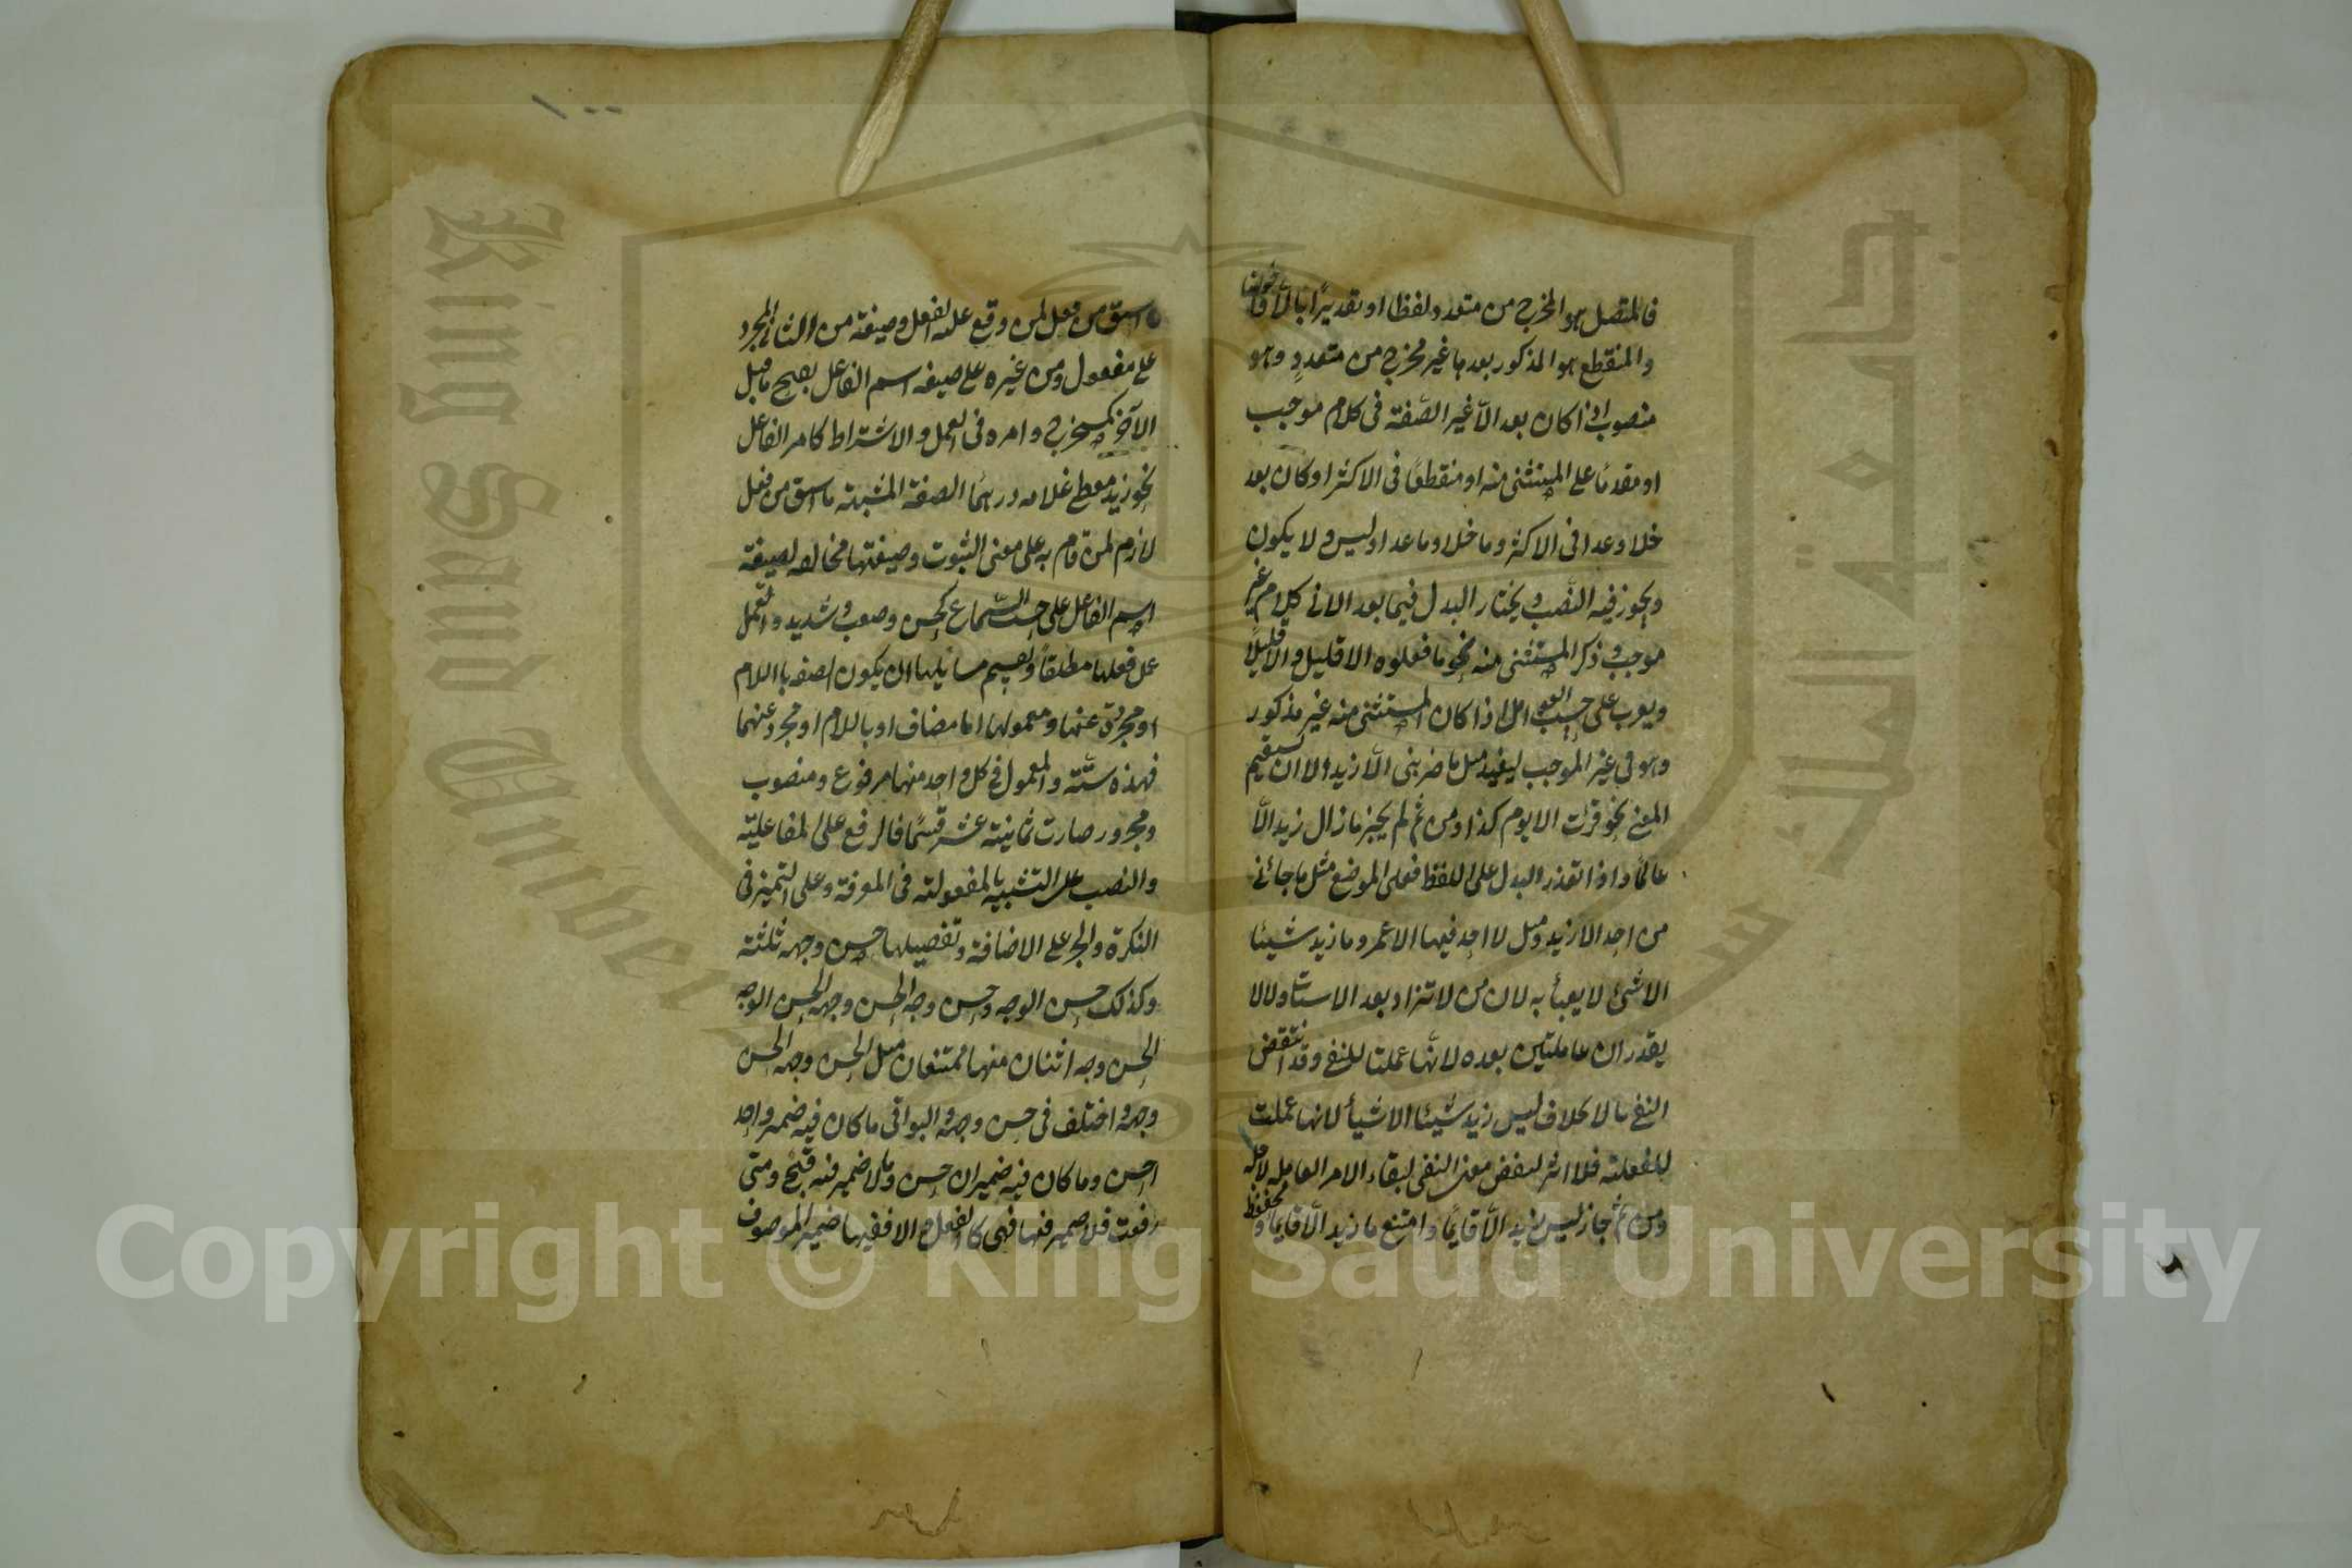 فالمتصل هو المخرج من متعدد لفظا او تقديرًا بالّا واخواتها
والمنقطع هو المذكور بعدها غير مخرج من متعددٍ وهو
منصوب اذا كان بعد الّا غير الصّفة فى كلام موجب
او مقدمًا على المستثنى منه او منقطعًا فى الاكثر او كان بعد
خلا وعدا فى الاكثر وما خلا وما عدا وليس ولا يكون
ويجوز فيه النّصب ويختار البدل فيما بعد الا فى كلام غير
موجب وذكر المستثنى منه نحو ما فعلوه الا قليل والا قليلًا
ويعرب على حسب العوامل اذا كان المستثنى منه غير مذكور
وهو فى غير الموجب ليفيد مثل ما ضربنى الّا زيد الا ان يستقيم
المعنى نحو قرات الا يوم كذا ومن ثم لم يجز ما زال زيد الّا
عالمًا واذا تعذر البدل على اللفظ فعلى الموضع مثل ما جائنى
من احد الا زيد ومثل لا احد فيها الا عمرو ما زيد شيئا
الا شئ لا يعبأ به لان من لا تزاد بعد الاستثنا وما ولا لا
يقدران عاملتين بعده لانّها عملتا للنفى وقد انتقض
النفى بالا بخلاف ليس زيد شيئا الا شيأ لانها عملت
للفعلية فلا اثر لنقض معنى النفى لبقاء الامر العامله لاجله
ومن ثم جاز ليس زيد الّا قايمًا وامتنع ما زيد الّا قايما ومخفوظ
١٠٠
ما اشتق من فعل لمن وقع عليه الفعل وصيغته من الثلاثى المجرد
على مفعول ومن غيره على صيغه اسم الفاعل بفتح ما قبل
الآخر كمستخرج وامره فى العمل والاشتراط كامر الفاعل
نحو زيد معطى غلامه درهمًا الصفة المشبهة ما اشتق من فعل
لازم لمن قام به على معنى الثبوت وصيغتها مخالفه لصيغة
اسم الفاعل على حسب السّماع كحسن وصعب وشديد وتعمل
عمل فعلها مطلقاً وتقسيم مسايلها ان يكون الصفه باللام
او مجردة عنها ومعمولها اما مضاف او باللام او مجرد عنهما
فهذه ستّة والمعمول فى كل واحد منها مرفوع ومنصوب
ومجرور صارت ثمانية عشر قسمًا فالرفع على الفاعلية
والنصب على التشبيه بالمفعولية فى المعرفة وعلى التميز فى
النكرة والجر على الاضافة وتفصيلها حسن وجهه ثلثة
وكذلك حسن الوجه وحسن وجه الحسن وجهه الحسن الوجه
الحسن وجه اثنان منها ممتنعان مثل الحسن وجهه الحسن
وجه واختلف فى حسن وجهه والبواقى ما كان فيه ضمير واحد
احسن وما كان فيه ضميران حسن وما لا ضمير فيه قبيح ومتى
رفعت فلا ضمير فيها فهى كالفعل والا ففيها ضمير الموصوف
King Saud University
Copyright © King Saud University